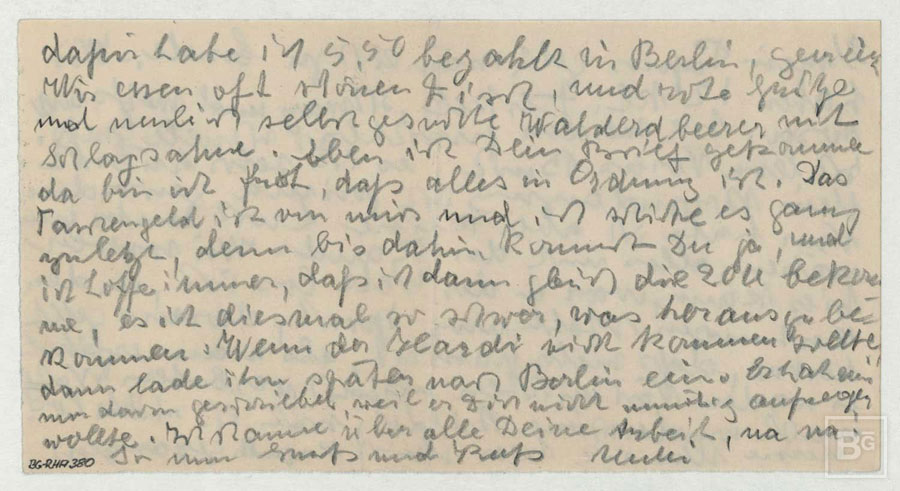 dafür habe ich 5,50 bezahlt in Berlin,
Wir essen oft schönen Fisch, und rote Grütze
und neulich selbstgesuchte Walderdbeeren mit
Schlagsahne. Eben ist Dein Brief gekommen
da bin ich froh, daß alles in Ordnung ist. Das
Taschengeld ist von mir und ich schicke es ganz
zuletzt, denn bis dahin kommst Du ja, und
ich hoffe immer, daß ich dann gleich die bekom
me, es ist diesmal so schwer, was herauszube-
kommen. Wenn der Hardi nicht kommen sollte,
dann lade ihn später nach Berlin ein. Er hat mir
nur davon geschrieben, weil er Dich nicht unnötig aufregen
wollte. Ich staune über alle Deine Arbeit, na na!
So nun Gruß und Kuß
BG-RHA 380
BG